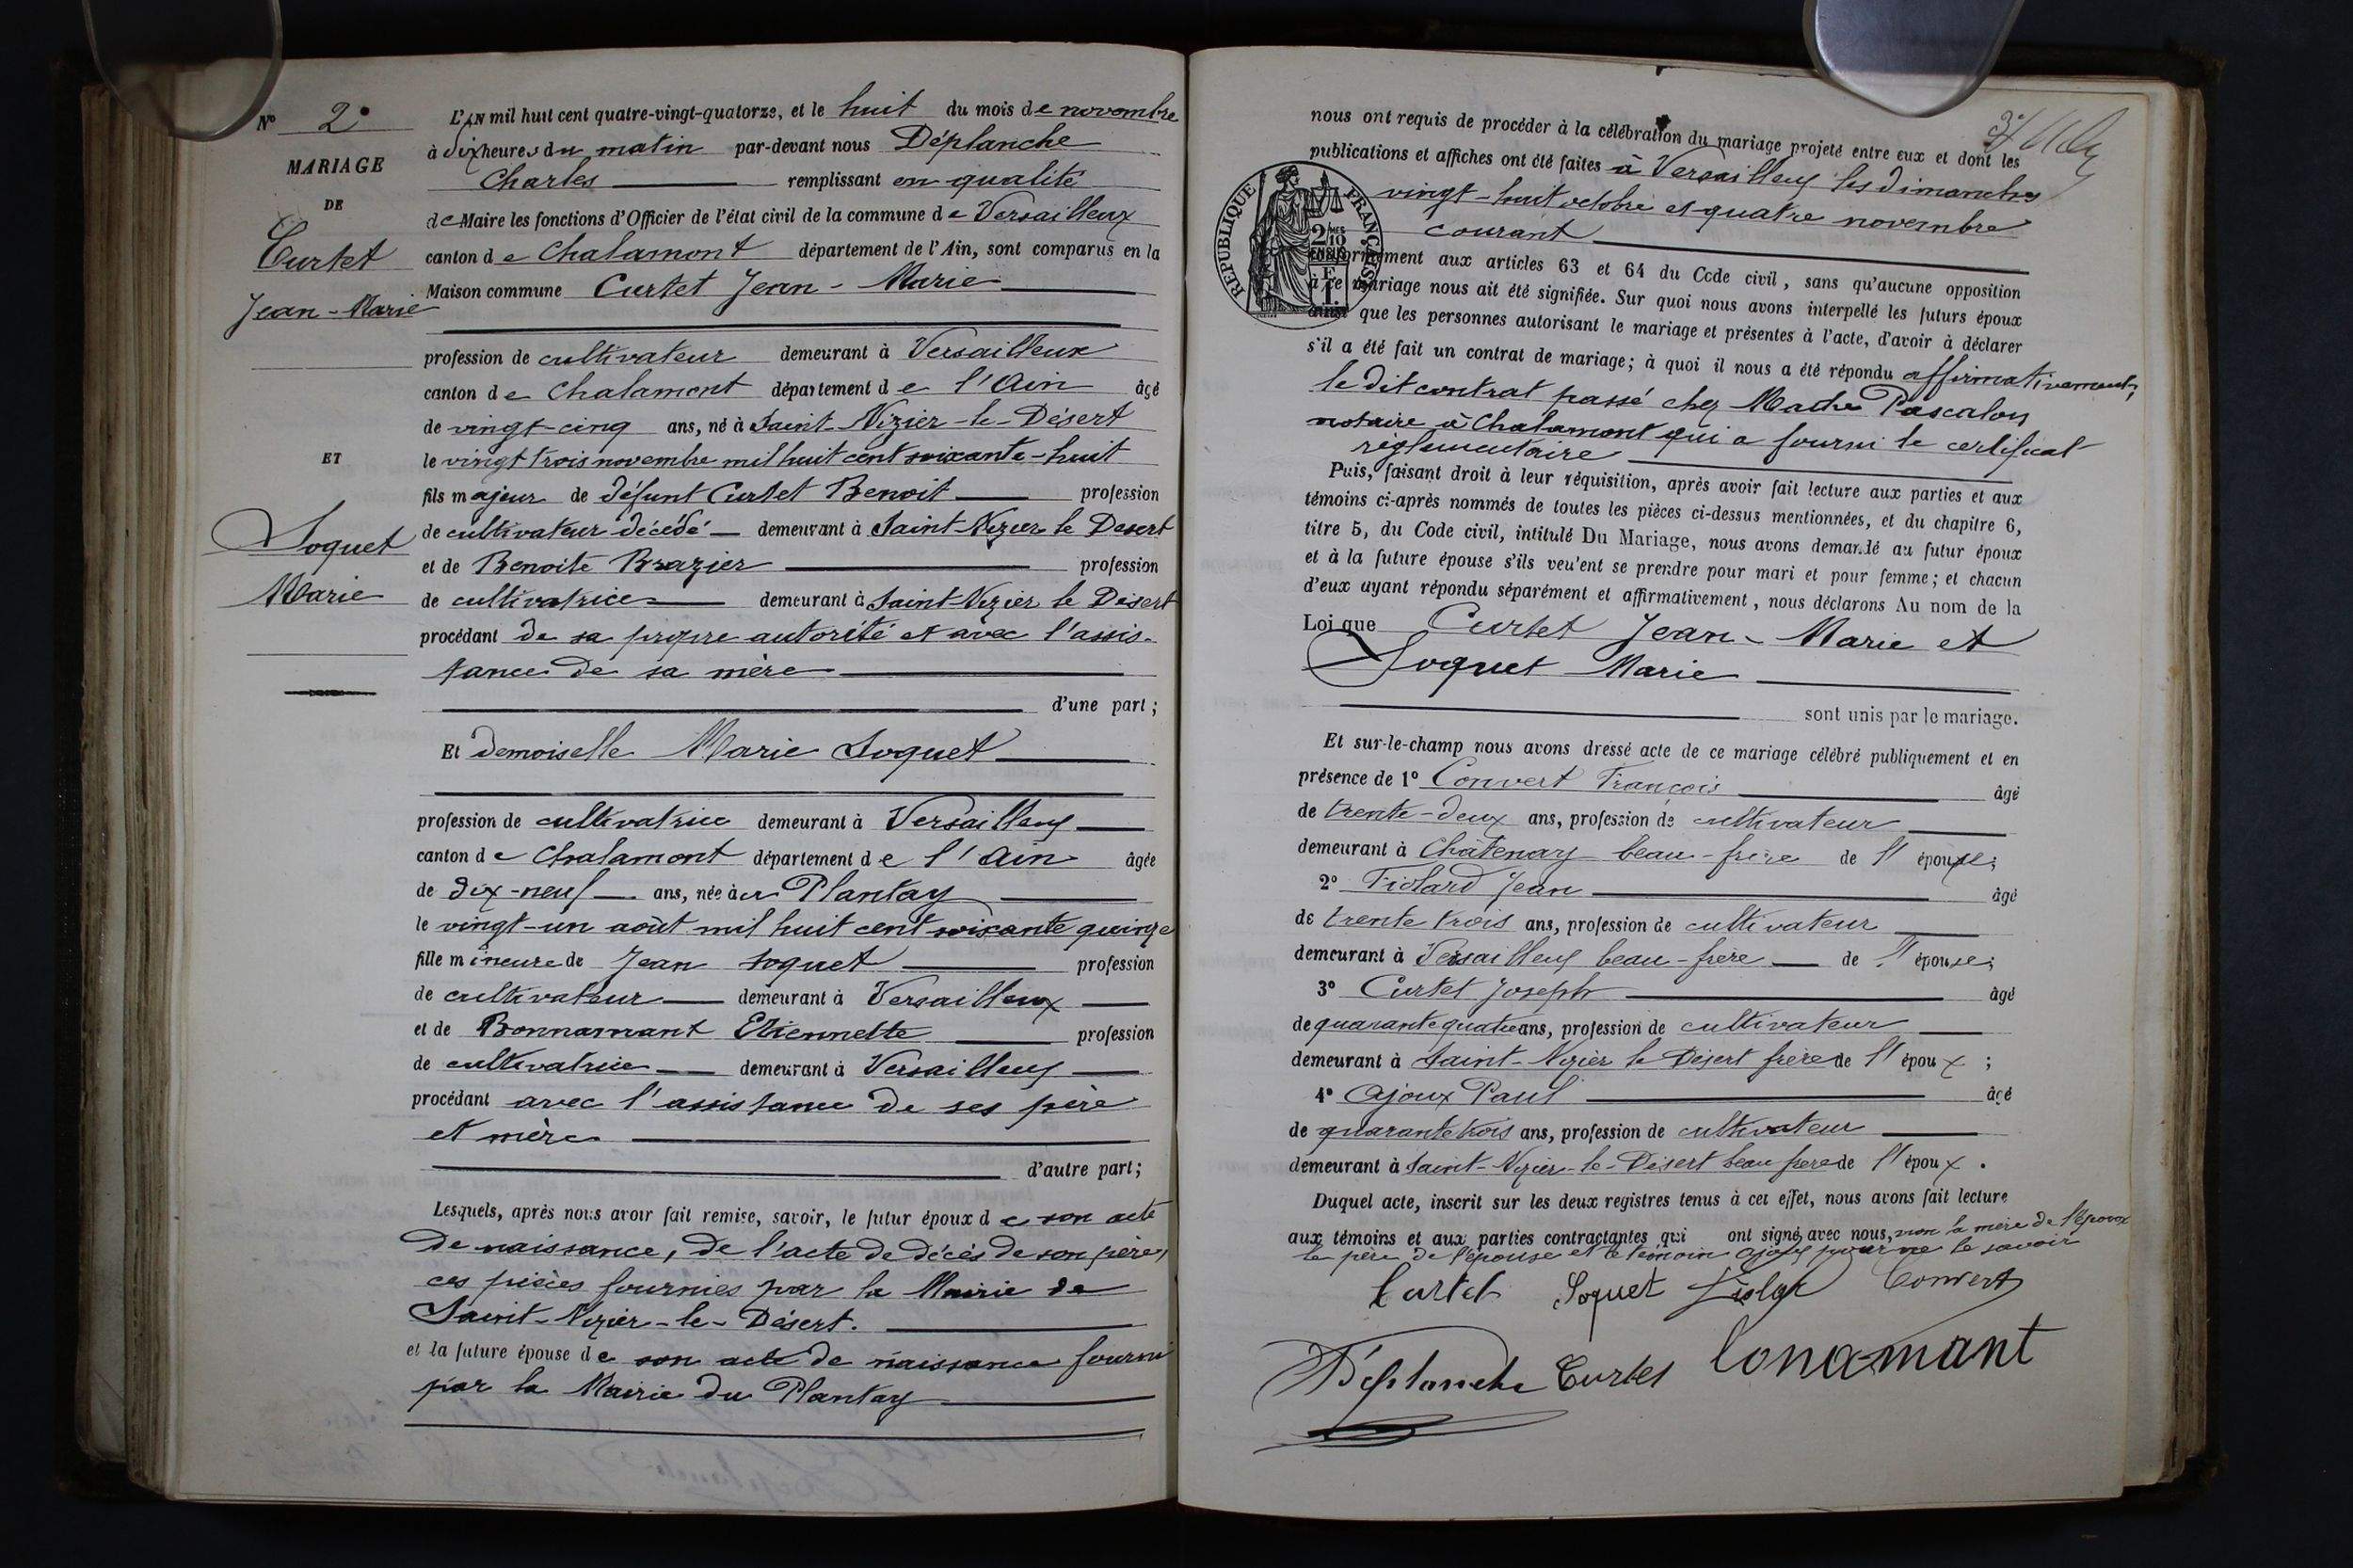 N° 2°
MARIAGE
DE
Curtet
Jean-Marie
ET
Soquet
Marie
L'AN mil huit cent quatre-vingt-quatorze, et le huit du mois de novembre
à dix heures du matin par-devant nous Déplanche
Charles remplissant en qualité
de Maire les fonctions d'Officier de l'état civil de la commune de Versailleux
canton de Chalamont département de l'Ain, sont comparus en la
Maison commune Curtet Jean-Marie
profession de cultivateur demeurant à Versailleux
canton de Chalamont département de l'Ain âgé
de vingt-cinq ans, né à Saint-Nizier-le-Désert
le vingt trois novembre mil huit cent soixante-huit
fils majeur de défunt Curtet Benoit profession
de cultivateur décédé demeurant à Saint-Nizier le Désert
et de Benoite Brazier profession
de cultivatrice demeurant à Saint-Nizier le Désert
procédant de sa propre autorité et avec l'assis-
tance de sa mère
d'une part;
Et demoiselle Marie Soquet
profession de cultivatrice demeurant à Versailleux
canton de Chalamont département de l'Ain âgée
de dix-neuf ans, née au Plantay
le vingt-un août mil huit cent soixante quinze
fille mineure de Jean Soquet profession
de cultivateur demeurant à Versailleux
et de Bonnamant Etiennette profession
de cultivatrice demeurant à Versailleux
procédant avec l'assistance de ses père
et mère
d'autre part;
Lesquels, après nous avoir fait remise, savoir, le futur époux de son acte
de naissance, de l'acte de décès de son père,
ces pièces fournies par la Mairie de
Saint-Nizier-le-Désert.
et la future épouse de son acte de naissance fourni
par la Mairie du Plantay
nous ont requis de procéder à la célébration du mariage projeté entre eux et dont les
publications et affiches ont été faites à Versailleux les dimanches
vingt-huit octobre et quatre novembre
courant
RÉPUBLIQUE FRANÇAISE
2 MES 10
EN SUS
F
1.
conformément aux articles 63 et 64 du Code civil, sans qu'aucune opposition
à ce mariage nous ait été signifiée. Sur quoi nous avons interpellé les futurs époux
ainsi que les personnes autorisant le mariage et présentes à l'acte, d'avoir à déclarer
s'il a été fait un contrat de mariage; à quoi il nous a été répondu affirmativement;
le dit contrat passé chez Maître Pascalon
notaire à Chalamont qui a fourni le certificat
réglementaire
Puis, faisant droit à leur réquisition, après avoir fait lecture aux parties et aux
témoins ci-après nommés de toutes les pièces ci-dessus mentionnées, et du chapitre 6,
titre 5, du Code civil, intitulé Du Mariage, nous avons demandé au futur époux
et à la future épouse s'ils veulent se prendre pour mari et pour femme; et chacun
d'eux ayant répondu séparément et affirmativement, nous déclarons Au nom de la
Loi que Curtet Jean-Marie et
Soquet Marie
sont unis par le mariage.
Et sur-le-champ nous avons dressé acte de ce mariage célébré publiquement et en
présence de 1° Convert François âgé
de trente-deux ans, profession de cultivateur
demeurant à Châtenay beau-frère de l'épouse;
2° Fiolard Jean âgé
de trente trois ans, profession de cultivateur
demeurant à Versailleux beau-frère de l'épouse;
3° Curtet Joseph âgé
de quarante quatre ans, profession de cultivateur
demeurant à Saint-Nizier le Désert frère de l'époux;
4° Ajoux Paul âgé
de quarante trois ans, profession de cultivateur
demeurant à Saint-Nizier-le-Désert beau frère de l'époux.
Duquel acte, inscrit sur les deux registres tenus à cet effet, nous avons fait lecture
aux témoins et aux parties contractantes qui ont signé avec nous, non la mère de l'époux
le père de l'épouse et le témoin ajoux pour ne le savoir
Curtet Soquet Convert
Déplanche Curtet